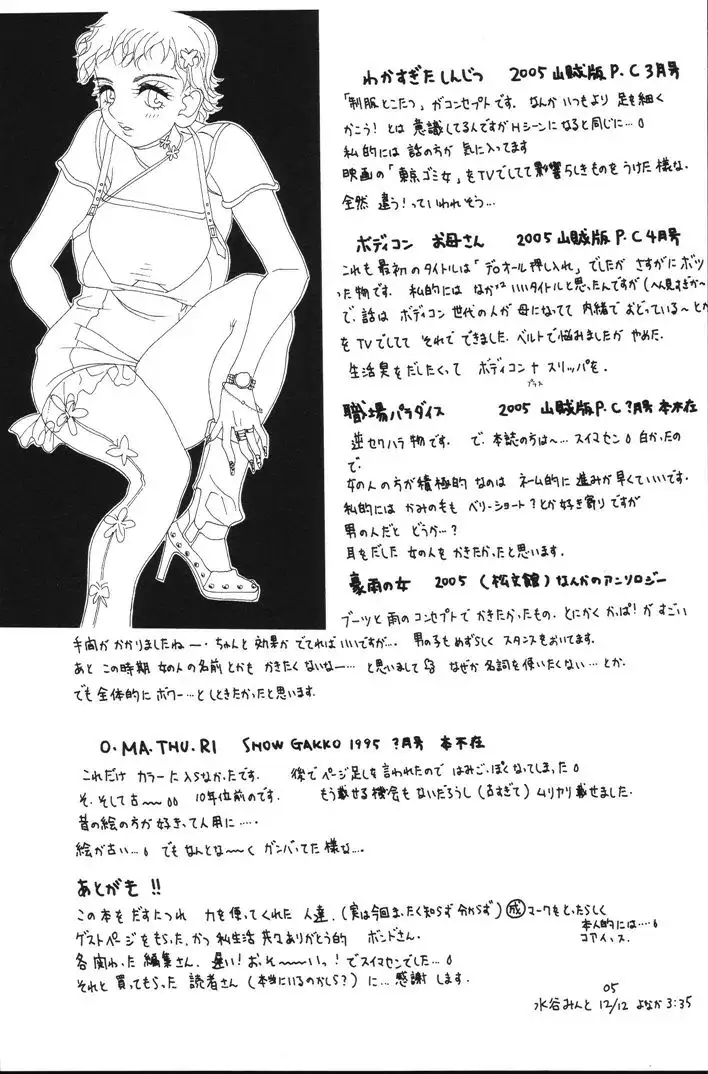 わかすぎたしんじつ 2005 山賊版 P.C 3月号
「制服とこたつ」がコンセプトです。なんかいつもより足を細く
かこう!とは意識してるんですがHシーンになると同じに…。
私的には話の方が気に入ってます
映画の「東京ゴミ女」をTVでしてて影響らしきものをうけた様な。
全然違う!っていわれそう…
ボディコン お母さん 2005 山賊版 P.C 4月号
これも最初のタイトルは「デオール押し入れ」でしたがさすがにボツ
った物です。私的にはなかなかいいタイトルと思ったんですが(へん見すぎか〜
で、話はボディコン世代の人が母になってて内緒でおどっている〜とか
をTVでしててそれでできました。ベルトで悩みましたがやめた。
生活臭をだしたくってボディコン+スリッパを。
プラス
職場パラダイス 2005 山賊版 P.C ?月号 本不在
逆セクハラ物です。で、本誌の方は〜…スイマセン。白かったの
で。
女の人の方が積極的なのはネーム的に進みが早くていいです。
私的にはかみのもベリーショート?とか好き寄りですが
男の人だとどうか…?
耳をだした女の人をかきたかったと思います。
豪雨の女 2005 (松文館)なんかのアンソロジー
ブーツと雨のコンセプトでかきたかったもの。とにかくかっぱ!がすごい
手間がかかりましたねー…ちゃんと効果がでてればいいですが…。男の子もめずらしくスタンスもおいてます。
あとこの時期女の人の名前とかもかきたくないなー…と思いまして なぜか名詞を使いたくない…とか。
でも全体的にボワー…としときたかったと思います。
O.MA.THU.RI SHOW GAKKO 1995 ?月号 本不在
これだけカラーに入らなかったです。後でページ足しを言われたのではみごっぽくなってしまった。
そ、そして古〜〜。。10年位前のです。もう載せる機会もないだろうし(古すぎて)ムリヤリ載せました。
昔の絵の方が好きって人用に……
絵が古い…。でもなんとな〜〜くガンバってた様な…。
あとがき!!
この本をだすたつれ力を使ってくれた人達、(実は今回まったく知らず分からず)成マークをとったらしく
本人的には…。
コアイッス。
ゲストページをもらった、かつ私生活共々ありがとう的ボンドさん。
各関わった編集さん、遅い!おっそ〜〜いっ!でスイマセンでした…。
それと買ってもらった読者さん(本当にいるのかしら?)に…感謝します。
05
水谷みんと 12/12 よなか 3:35